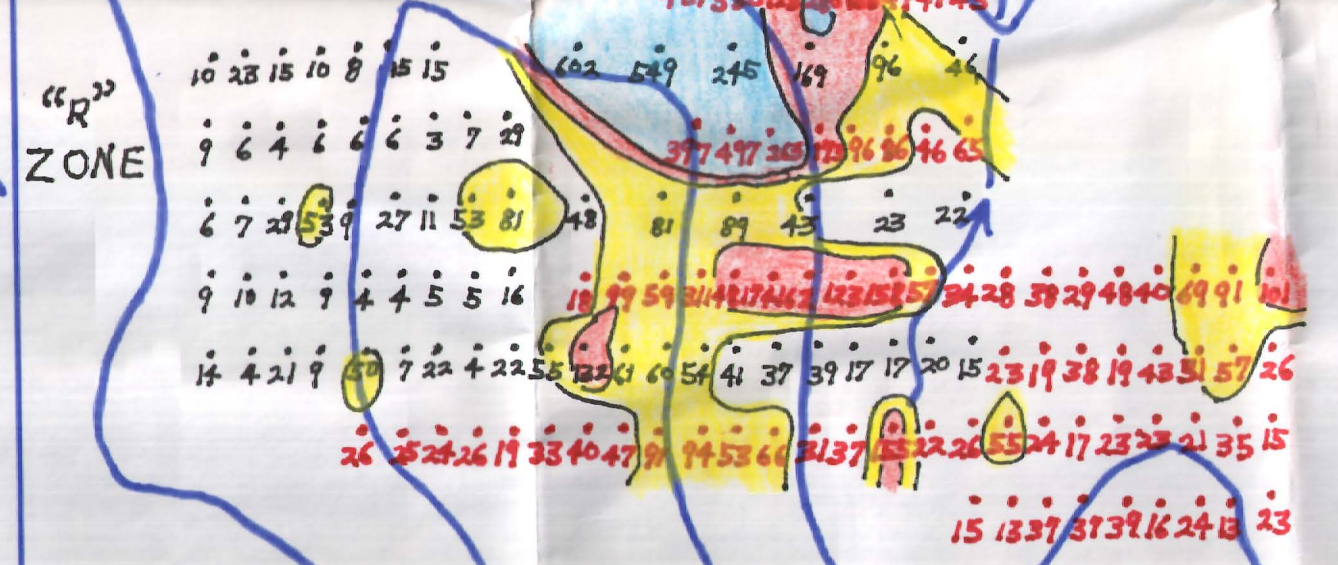 10 23 15 10 8 15 15 602 549 245 169 96 46
"R"
ZONE
9 6 4 6 6 6 3 7 29 397 497 263 96 86 46 65
6 7 29 53 9 27 11 53 81 48 81 89 43 23 22
9 10 12 9 4 4 5 5 16 18 99 59 123 158 57 34 28 38 29 48 40 69 91 101
14 4 21 9 50 7 22 4 22 55 132 61 60 54 41 37 39 17 17 20 15 23 19 38 19 43 51 57 26
26 25 24 26 19 33 40 47 91 94 53 66 31 37 155 22 26 55 24 17 23 23 21 35 15
15 13 37 37 39 16 24 13 23